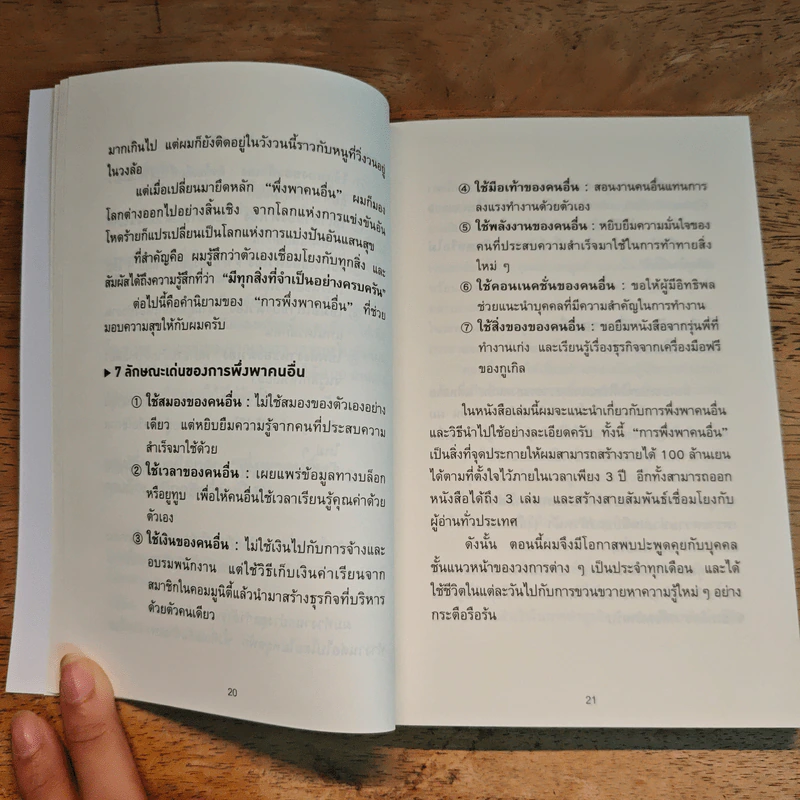 มากเกินไป แต่ผมก็ยังติดอยู่ในวังวนนี้ราวกับหนูที่วิ่งวนอยู่
ในวงล้อ
แต่เมื่อเปลี่ยนมายึดหลัก “พึ่งพาคนอื่น” ผมก็มอง
โลกต่างออกไปอย่างสิ้นเชิง จากโลกแห่งการแข่งขันอัน
โหดร้ายก็แปรเปลี่ยนเป็นโลกแห่งการแบ่งปันอันแสนสุข
ที่สำคัญคือ ผมรู้สึกว่าตัวเองเชื่อมโยงกับทุกสิ่ง และ
สัมผัสได้ถึงความรู้สึกที่ว่า “มีทุกสิ่งที่จำเป็นอย่างครบครัน”
ต่อไปนี้คือคำนิยามของ “การพึ่งพาคนอื่น” ที่ช่วย
มอบความสุขให้กับผมครับ
▶ 7 ลักษณะเด่นของการพึ่งพาคนอื่น
① ใช้สมองของคนอื่น : ไม่ใช้สมองของตัวเองอย่าง
เดียว แต่หยิบยืมความรู้จากคนที่ประสบความ
สำเร็จมาใช้ด้วย
② ใช้เวลาของคนอื่น : เผยแพร่ข้อมูลทางบล็อก
หรือยูทูบ เพื่อให้คนอื่นใช้เวลาเรียนรู้คุณค่าด้วย
ตัวเอง
③ ใช้เงินของคนอื่น : ไม่ใช้เงินไปกับการจ้างและ
อบรมพนักงาน แต่ใช้วิธีเก็บเงินค่าเรียนจาก
สมาชิกในคอมมูนิตี้แล้วนำมาสร้างธุรกิจที่บริหาร
ด้วยตัวคนเดียว
20
④ ใช้มือเท้าของคนอื่น : สอนงานคนอื่นแทนการ
ลงแรงทำงานด้วยตัวเอง
⑤ ใช้พลังงานของคนอื่น : หยิบยืมความมั่นใจของ
คนที่ประสบความสำเร็จมาใช้ในการท้าทายสิ่ง
ใหม่ ๆ
⑥ ใช้คอนเนคชั่นของคนอื่น : ขอให้ผู้มีอิทธิพล
ช่วยแนะนำบุคคลที่มีความสำคัญในการทำงาน
⑦ ใช้สิ่งของของคนอื่น : ขอยืมหนังสือจากรุ่นพี่ที่
ทำงานเก่ง และเรียนรู้เรื่องธุรกิจจากเครื่องมือฟรี
ของกูเกิล
ในหนังสือเล่มนี้ผมจะแนะนำเกี่ยวกับการพึ่งพาคนอื่น
และวิธีนำไปใช้อย่างละเอียดครับ ทั้งนี้ “การพึ่งพาคนอื่น”
เป็นสิ่งที่จุดประกายให้ผมสามารถสร้างรายได้ 100 ล้านเยน
ได้ตามที่ตั้งใจไว้ภายในเวลาเพียง 3 ปี อีกทั้งสามารถออก
หนังสือได้ถึง 3 เล่ม และสร้างสายสัมพันธ์เชื่อมโยงกับ
ผู้อ่านทั่วประเทศ
ดังนั้น ตอนนี้ผมจึงมีโอกาสพบปะพูดคุยกับบุคคล
ชั้นแนวหน้าของวงการต่าง ๆ เป็นประจำทุกเดือน และได้
ใช้ชีวิตในแต่ละวันไปกับการขวนขวายหาความรู้ใหม่ ๆ อย่าง
กระตือรือร้น
21